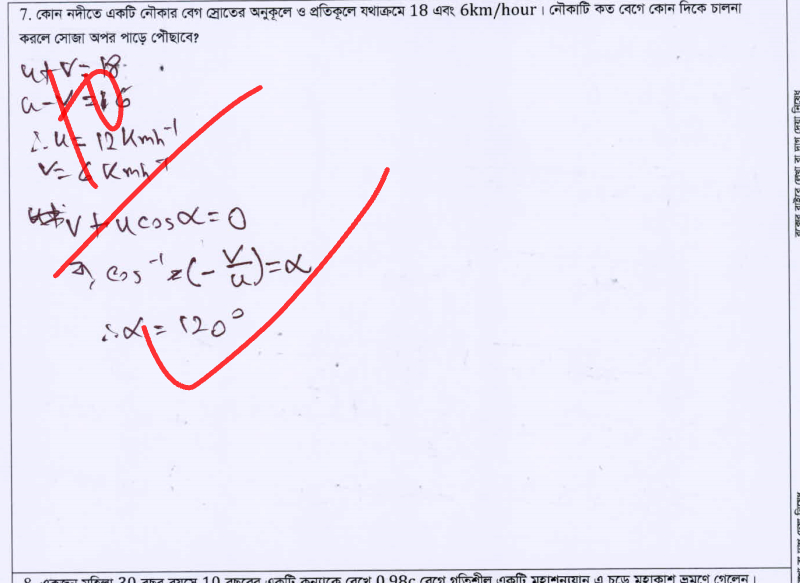 7. কোন নদীতে একটি নৌকার বেগ স্রোতের অনুকূলে ও প্রতিকূলে যথাক্রমে 18 এবং 6km/hour। নৌকাটি কত বেগে কোন দিকে চালনা
করলে সোজা অপর পাড়ে পৌছাবে?
u+v=18
u-v=6
∴u= 12 Kmh⁻¹
v= 6 Kmh⁻¹
v+ucosα=0
বা, cos⁻¹(-v/u)=α
∴α=120°
8. একজন মহিলা 30 বছর বয়সে 10 বছরের একটি কন্যাকে রেখে 0.98c বেগে গতিশীল একটি মহাশূন্যযান এ চড়ে মহাকাশ ভ্রমণে গেলেন।